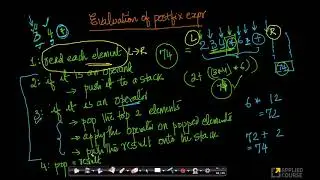 Evaluation of postfix expr
1: read each element L→R
2: if it is an operand
→ push it to a stack
3: if it is an operator
→ pop the top 2 elements
→ apply the operator on popped elements
→ push the result onto the stack
4: pop = result
74
L
R
2 3 4 + 6 * +
74
6 * 12
=72
72 + 2
= 74
APPLIED
COURSE